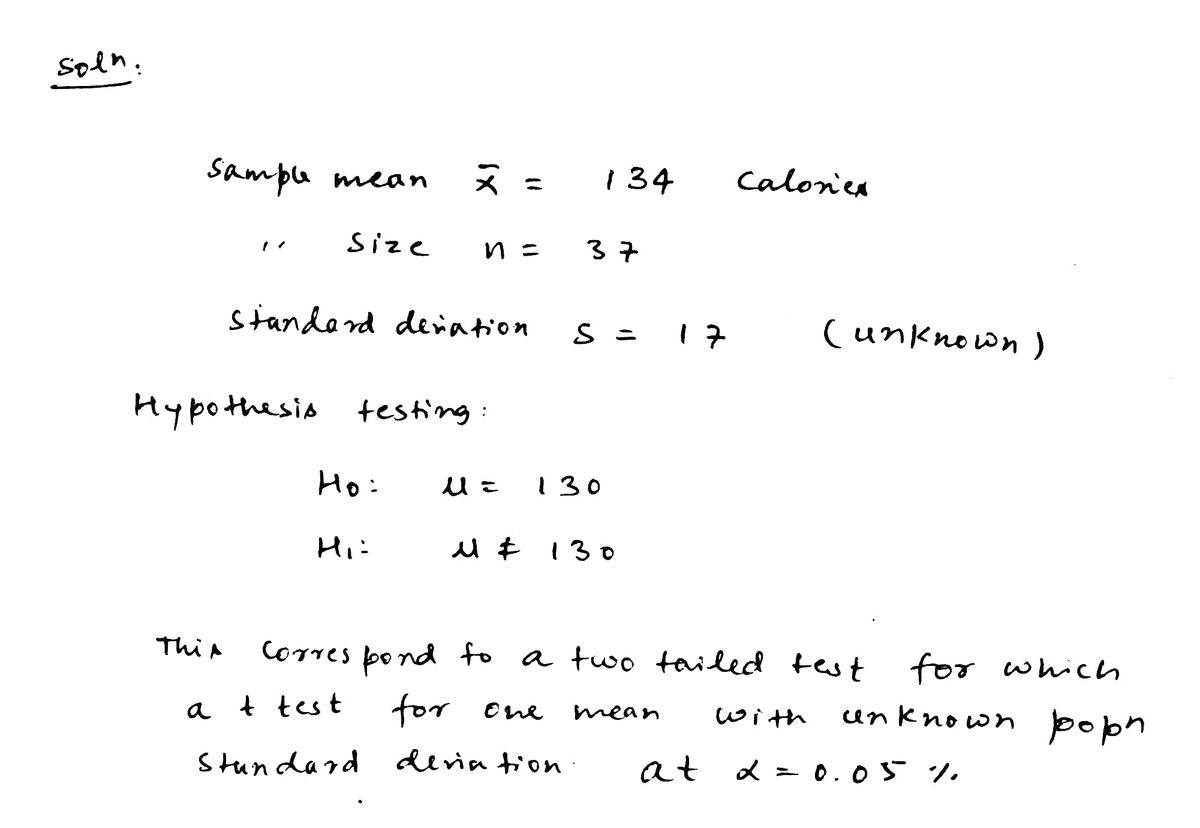 Soln:
Sample mean x̄ = 134 Calories
" Size n = 37
Standard deviation S = 17 (unknown)
Hypothesis testing:
H₀: μ = 130
H₁: μ ≠ 130
This correspond to a two tailed test for which
a t test for one mean with unknown popn
Standard deviation at α = 0.05 %.